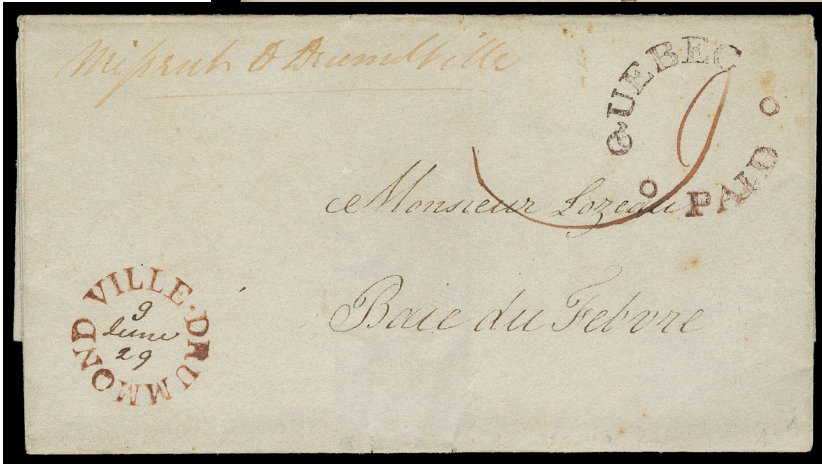 Missent to Drumdville
QUEBEC
PAID
9
Monsieur Lozeau
Baie du Febvre
DRUMMOND VILLE
9
June
29